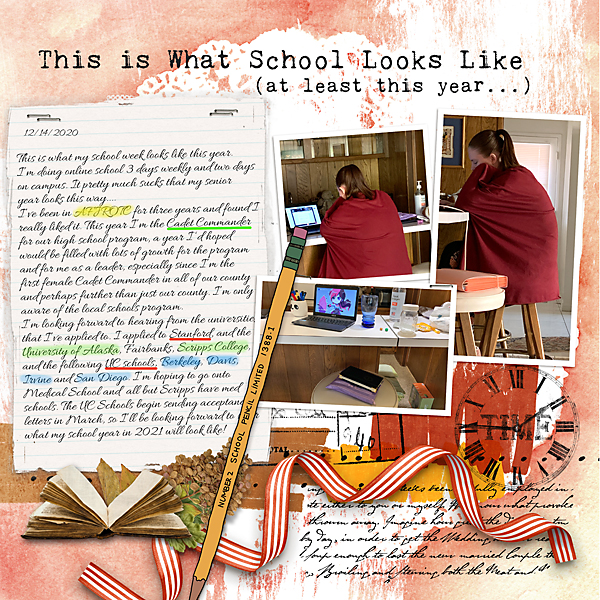 This is What School Looks Like
(at least this year...)
12/14/2020
This is what my school week looks like this year.
I'm doing online school 3 days weekly and two days
on campus. It pretty much sucks that my senior
year looks this way....
I've been in AFJROTC for three years and found I
really liked it. This year I'm the Cadet Commander
for our high school program, a year I'd hoped
would be filled with lots of growth for the program
and for me as a leader, especially since I'm the
first female Cadet Commander in all of our county
and perhaps further than just our county. I'm only
aware of the local schools program.
I'm looking forward to hearing from the universitie
that I've applied to. I applied to Stanford and the
University of Alaska, Fairbanks, Scripps College,
and the following UC schools, Berkeley, Davis,
Irvine and San Diego. I'm hoping to go onto
Medical School and all but Scripps have med
schools. The UC Schools begin sending acceptanc
letters in March, so I'll be looking forward to
what my school year in 2021 will look like!
NUMBER 2 SCHOOL PENCIL LIMITED 1388-1
TIME
employed in
either to you or myself
what provoke
thrown away. Imagine how
by Day, in order to get the Wedding
enough to last the new married Couple
Broiling and Stewing, both the Meat and